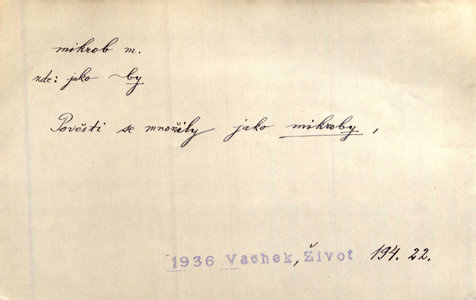 mikrob m.
zde: jako ~by
Pověsti se množily jako mikroby,
1936 Vachek, Život 194. 22.